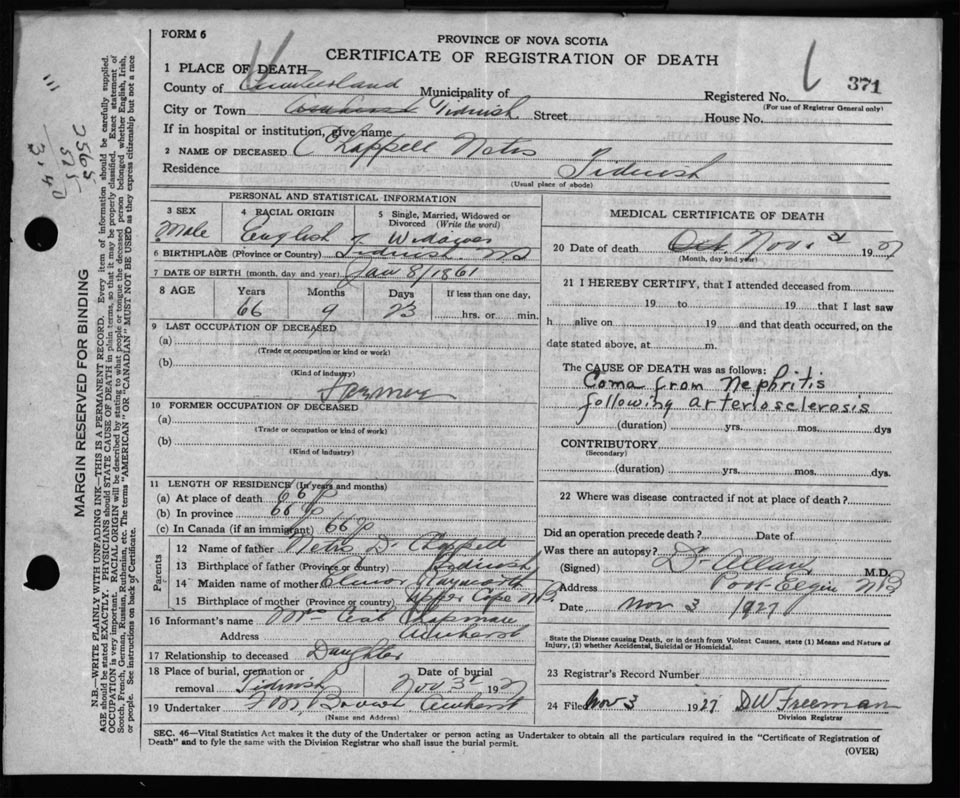 FORM 6
PROVINCE OF NOVA SCOTIA
CERTIFICATE OF REGISTRATION OF DEATH
371
1 PLACE OF DEATH—
County of Cumberland Municipality of Registered No.
(For use of Registrar General only)
City or Town Tidnish Street House No.
If in hospital or institution, give name
2 NAME OF DECEASED Chappell
Residence Tidnish
(Usual place of abode)
PERSONAL AND STATISTICAL INFORMATION
3 SEX
Male
4 RACIAL ORIGIN
English
5 Single, Married, Widowed or Divorced (Write the word)
6 BIRTHPLACE (Province or Country) Tidnish NS
7 DATE OF BIRTH (month, day and year) Jan 8/1861
8 AGE Years Months Days If less than one day,
66 9 23 hrs. or min.
9 LAST OCCUPATION OF DECEASED
(a)
(Trade or occupation or kind or work)
(b)
(Kind of industry)
Farmer
10 FORMER OCCUPATION OF DECEASED
(a)
(Trade or occupation or kind of work)
(b)
(Kind of industry)
11 LENGTH OF RESIDENCE (In years and months)
(a) At place of death 66
(b) In province 66
(c) In Canada (if an immigrant) 66
Parents
12 Name of father D. Chappell
13 Birthplace of father (Province or country) Tidnish
14 Maiden name of mother
15 Birthplace of mother (Province or country) Upper Cape NB
16 Informant's name Mrs Chapman
Address Amherst
17 Relationship to deceased Daughter
18 Place of burial, cremation or removal Tidnish
Date of burial Nov 3 1927
19 Undertaker Amherst
(Name and Address)
MEDICAL CERTIFICATE OF DEATH
20 Date of death Oct. Nov. 1927
(Month, day and year)
21 I HEREBY CERTIFY, that I attended deceased from
19 to 19 that I last saw
h alive on 19 and that death occurred, on the
date stated above, at m.
The CAUSE OF DEATH was as follows:
Coma from Nephritis
following arteriosclerosis
(duration) yrs. mos. dys
CONTRIBUTORY
(Secondary)
(duration) yrs. mos. dys.
22 Where was disease contracted if not at place of death?
Did an operation precede death? Date of
Was there an autopsy?
(Signed) Dr Allen M.D.
Address Port Elgin NB
Date Nov 3 1927
State the Disease causing Death, or in death from Violent Causes, state (1) Means and Nature of
Injury, (2) whether Accidental, Suicidal or Homicidal.
23 Registrar's Record Number
24 Filed Nov 3 1927 DW Freeman
Division Registrar
SEC. 46—Vital Statistics Act makes it the duty of the Undertaker or person acting as Undertaker to obtain all the particulars required in the "Certificate of Registration of
Death" and to fyle the same with the Division Registrar who shall issue the burial permit.
(OVER)
MARGIN RESERVED FOR BINDING
N.B.—WRITE PLAINLY WITH UNFADING INK—THIS IS A PERMANENT RECORD. Every item of information should be carefully supplied.
AGE should be stated EXACTLY. PHYSICIANS should STATE CAUSE OF DEATH in plain terms, so that it may be properly classified. Exact statement of
OCCUPATION is very important. RACIAL ORIGIN will be described by stating to what people or tongue the deceased person belonged whether English, Irish,
Scotch, French, German, Russian, Ruthenian, etc. The terms "AMERICAN" or "CANADIAN" MUST NOT BE USED as they express citizenship but not a race
or people. See instructions on back of Certificate.